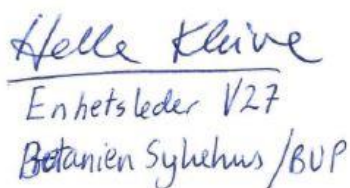 Helle Kleive
Enhetsleder V27
Betanien Sykehus /BUP